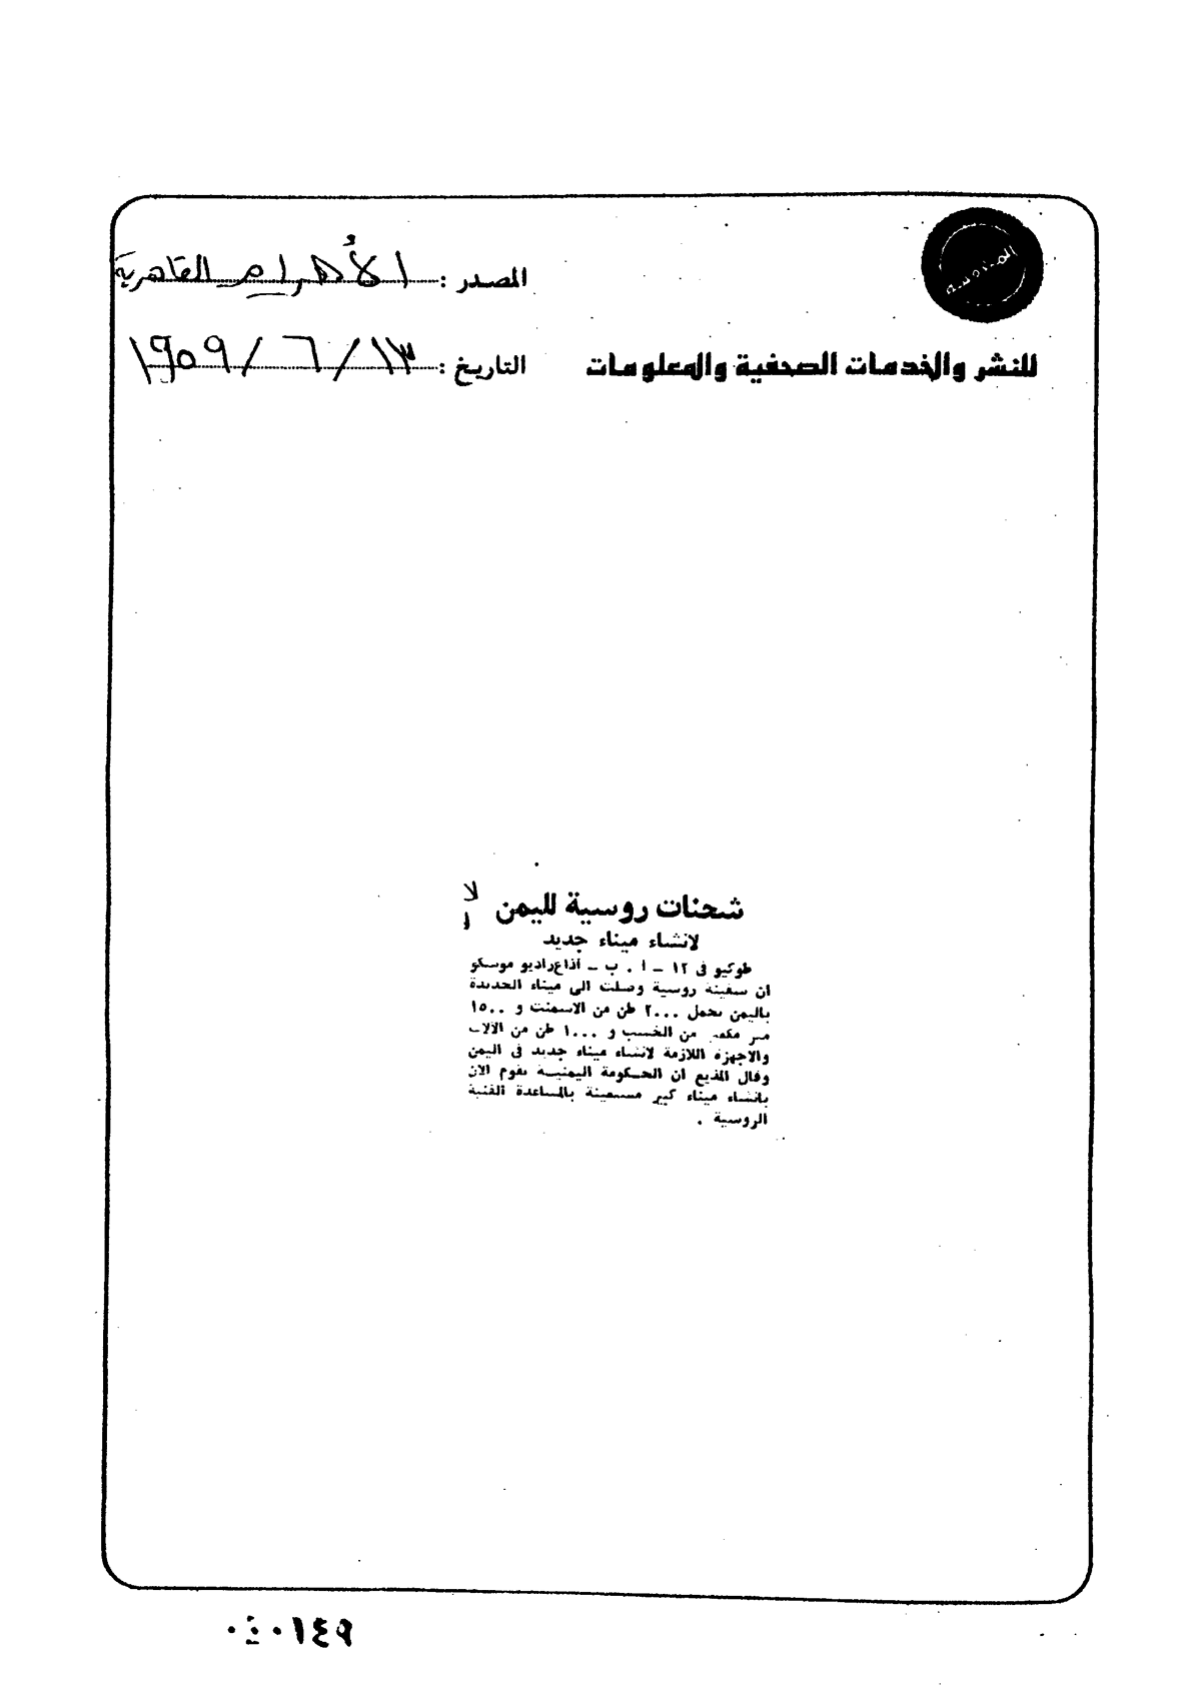 المحروسة
للنشر والخدمات الصحفية والمعلومات
المصدر : الأهرام القاهرية
التاريخ : ١٣ / ٦ / ١٩٥٩
شحنات روسية لليمن
لانشاء ميناء جديد
طوكيو فى ١٢ – ا . ب – أذاع راديو موسكو
ان سفينة روسية وصلت الى ميناء الحديدة
باليمن تحمل ٢٠٠٠ طن من الاسمنت و ١٥٠٠
متر مكعب من الخشب و ١٠٠٠ طن من الآلات
والاجهزة اللازمة لانشاء ميناء جديد فى اليمن
وقال المذيع ان الحكومة اليمنية تقوم الآن
بانشاء ميناء كبير مستعينة بالمساعدة الفنية
الروسية .